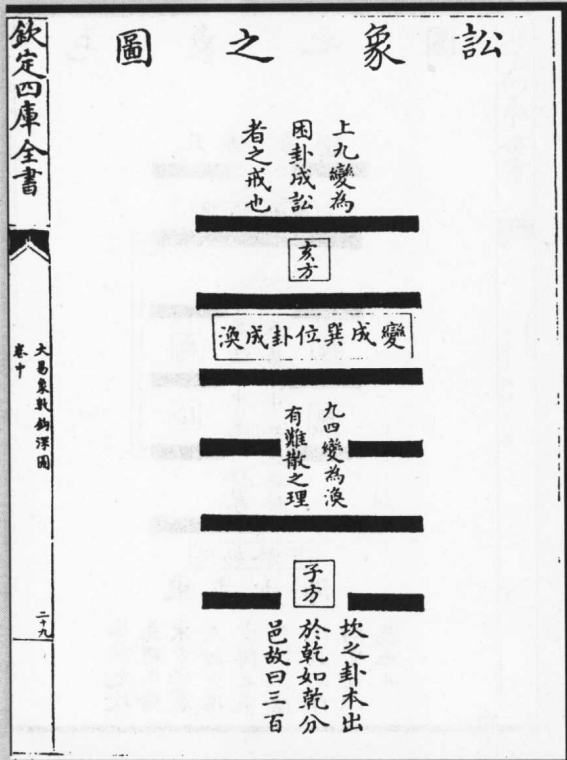 訟象之圖
上九變為
困卦成訟
者之戒也
亥方
變成巽位卦成渙
九四變為渙
有難散之理
子方
坎之卦本出
於乾如乾分
邑故曰三百
欽定四庫全書
大易象數鉤深圖
卷中
二十九